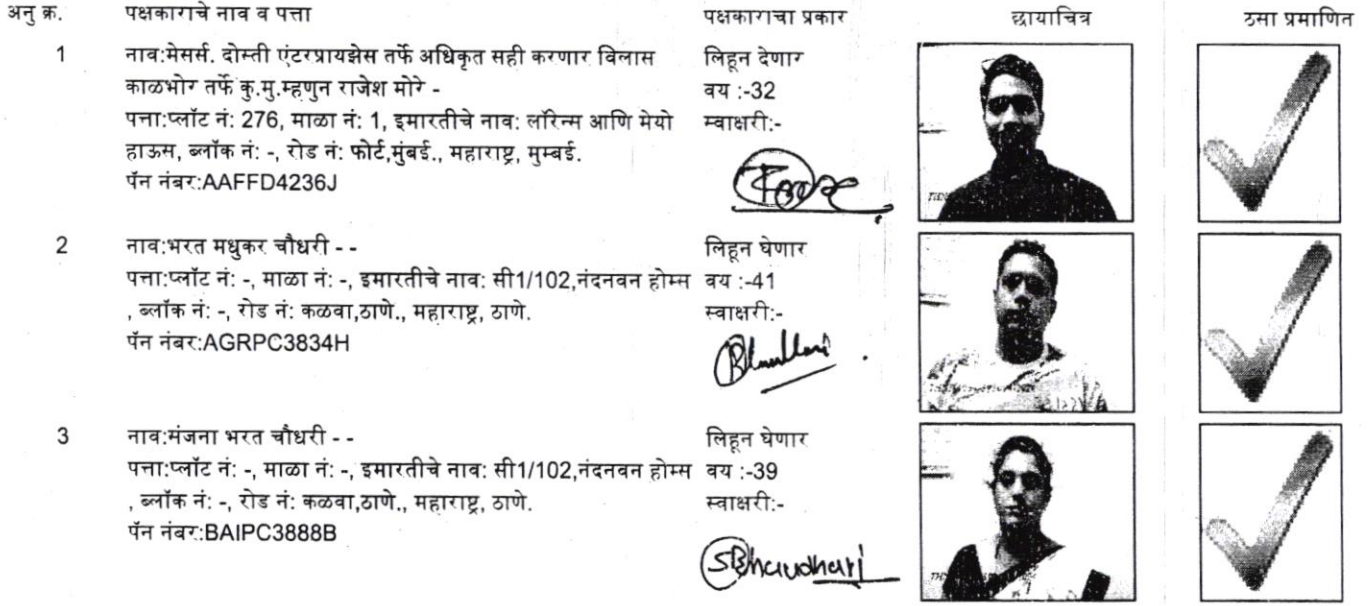 अनु क्र. पक्षकाराचे नाव व पत्ता पक्षकाराचा प्रकार छायाचित्र ठसा प्रमाणित
1 नाव:मेसर्स. दोस्ती एंटरप्रायझेस तर्फे अधिकृत सही करणार विलास
काळभोर तर्फे कु.मु.म्हणुन राजेश मोरे -
पत्ता:प्लॉट नं: 276, माळा नं: 1, इमारतीचे नाव: लॉरेन्स आणि मेयो
हाऊस, ब्लॉक नं: -, रोड नं: फोर्ट,मुंबई., महाराष्ट्र, मुम्बई.
पॅन नंबर:AAFFD4236J
लिहून देणार
वय :-32
स्वाक्षरी:-
2 नाव:भरत मधुकर चौधरी - -
पत्ता:प्लॉट नं: -, माळा नं: -, इमारतीचे नाव: सी1/102,नंदनवन होम्स
, ब्लॉक नं: -, रोड नं: कळवा,ठाणे., महाराष्ट्र, ठाणे.
पॅन नंबर:AGRPC3834H
लिहून घेणार
वय :-41
स्वाक्षरी:-
3 नाव:मंजना भरत चौधरी - -
पत्ता:प्लॉट नं: -, माळा नं: -, इमारतीचे नाव: सी1/102,नंदनवन होम्स
, ब्लॉक नं: -, रोड नं: कळवा,ठाणे., महाराष्ट्र, ठाणे.
पॅन नंबर:BAIPC3888B
लिहून घेणार
वय :-39
स्वाक्षरी:-
SBhaudhari